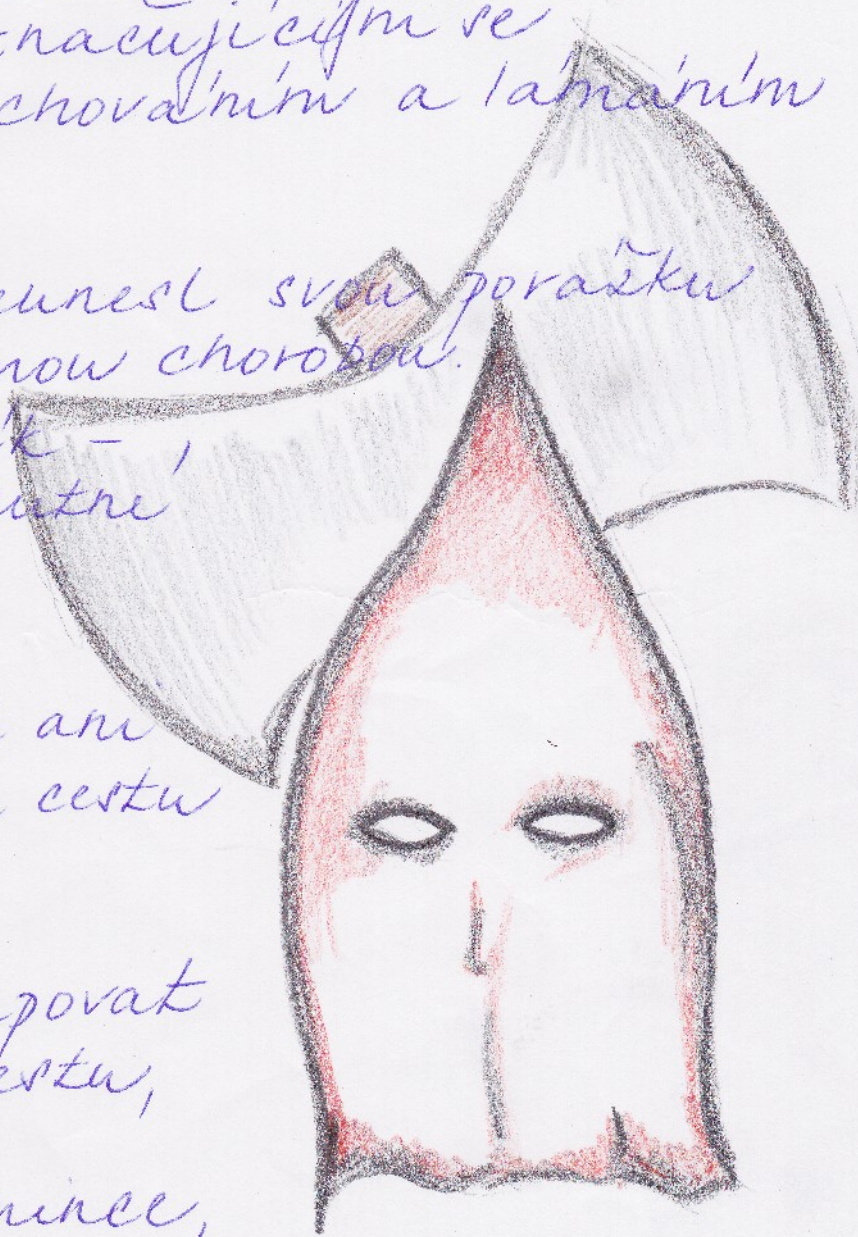 značujícím se
chováním a lámáním
eunesl svou porážku
nou chorobou.
ík - ,
utné
ani
cestu
povat
estu,
mince,